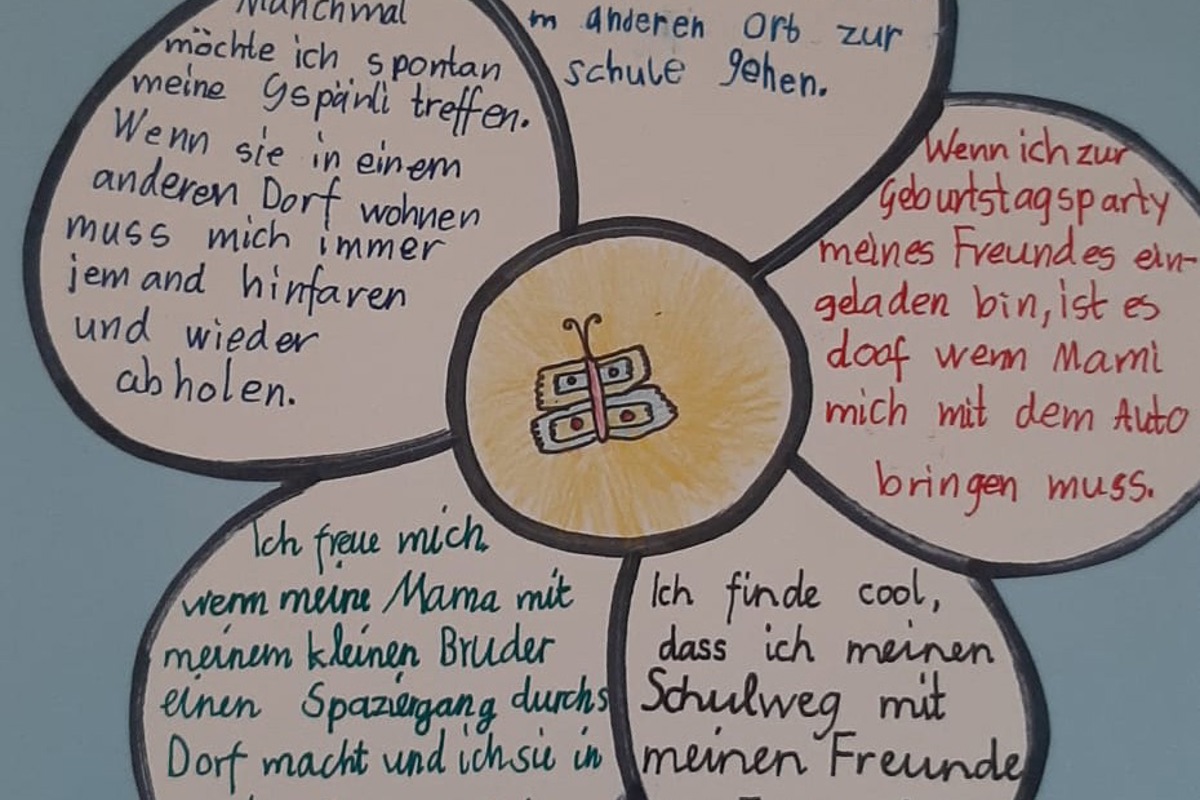 Manchmal
möchte ich spontan
meine Gspänli treffen.
Wenn sie in einem
anderen Dorf wohnen
muss mich immer
jemand hinfaren
und wieder
abholen.
m anderen Ort zur
schule gehen.
Wenn ich zur
Geburtstagsparty
meines Freundes ein-
geladen bin, ist es
doof wenn Mami
mich mit dem Auto
bringen muss.
Ich freue mich
wenn meine Mama mit
meinem kleinen Bruder
einen Spaziergang durchs
Dorf macht und ich sie in
Ich finde cool,
dass ich meinen
Schulweg mit
meinen Freunde